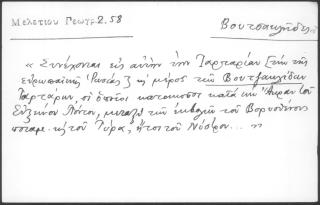 Μελετίου Γεωγρ. 2.58
Βουτσακηδες
« Συνέχονται εις αυτήν την Ταρταρίαν [τής της
ευρωπαϊκής Ρωσίας] ή μέρος της Βουτζακηδαν
Ταρτάρων, οι οποίοι κατοικουσι κατά την Άκραν του
Ευξείνου Πόντου, μεταξύ της εκβολής του Βορυσθένους
ποταμ. κ. του Τύρα, ήτοι του Νύστρου... »